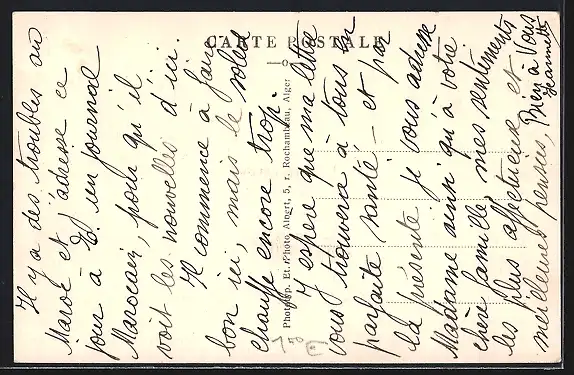 CARTE POSTALE
Il y a des troubles au
Maroc et j'adresse ce
jour à Ed. un journal
Marocain, pour qu'il
voit les nouvelles d'ici.
Il commence à faire
bon ici, mais le soleil
chauffe encore trop.
J'espère que ma lettre
vous trouvera à tous en
parfaite santé - et par
la présente je vous adresse
Madame ainsi qu'à votre
chère famille, mes sentiments
les plus affectueux et
meilleures pensées, Bien à Vous
Jeannette
Phototyp. Et. Photo Albert, 5, r. Rochambeau, Alger